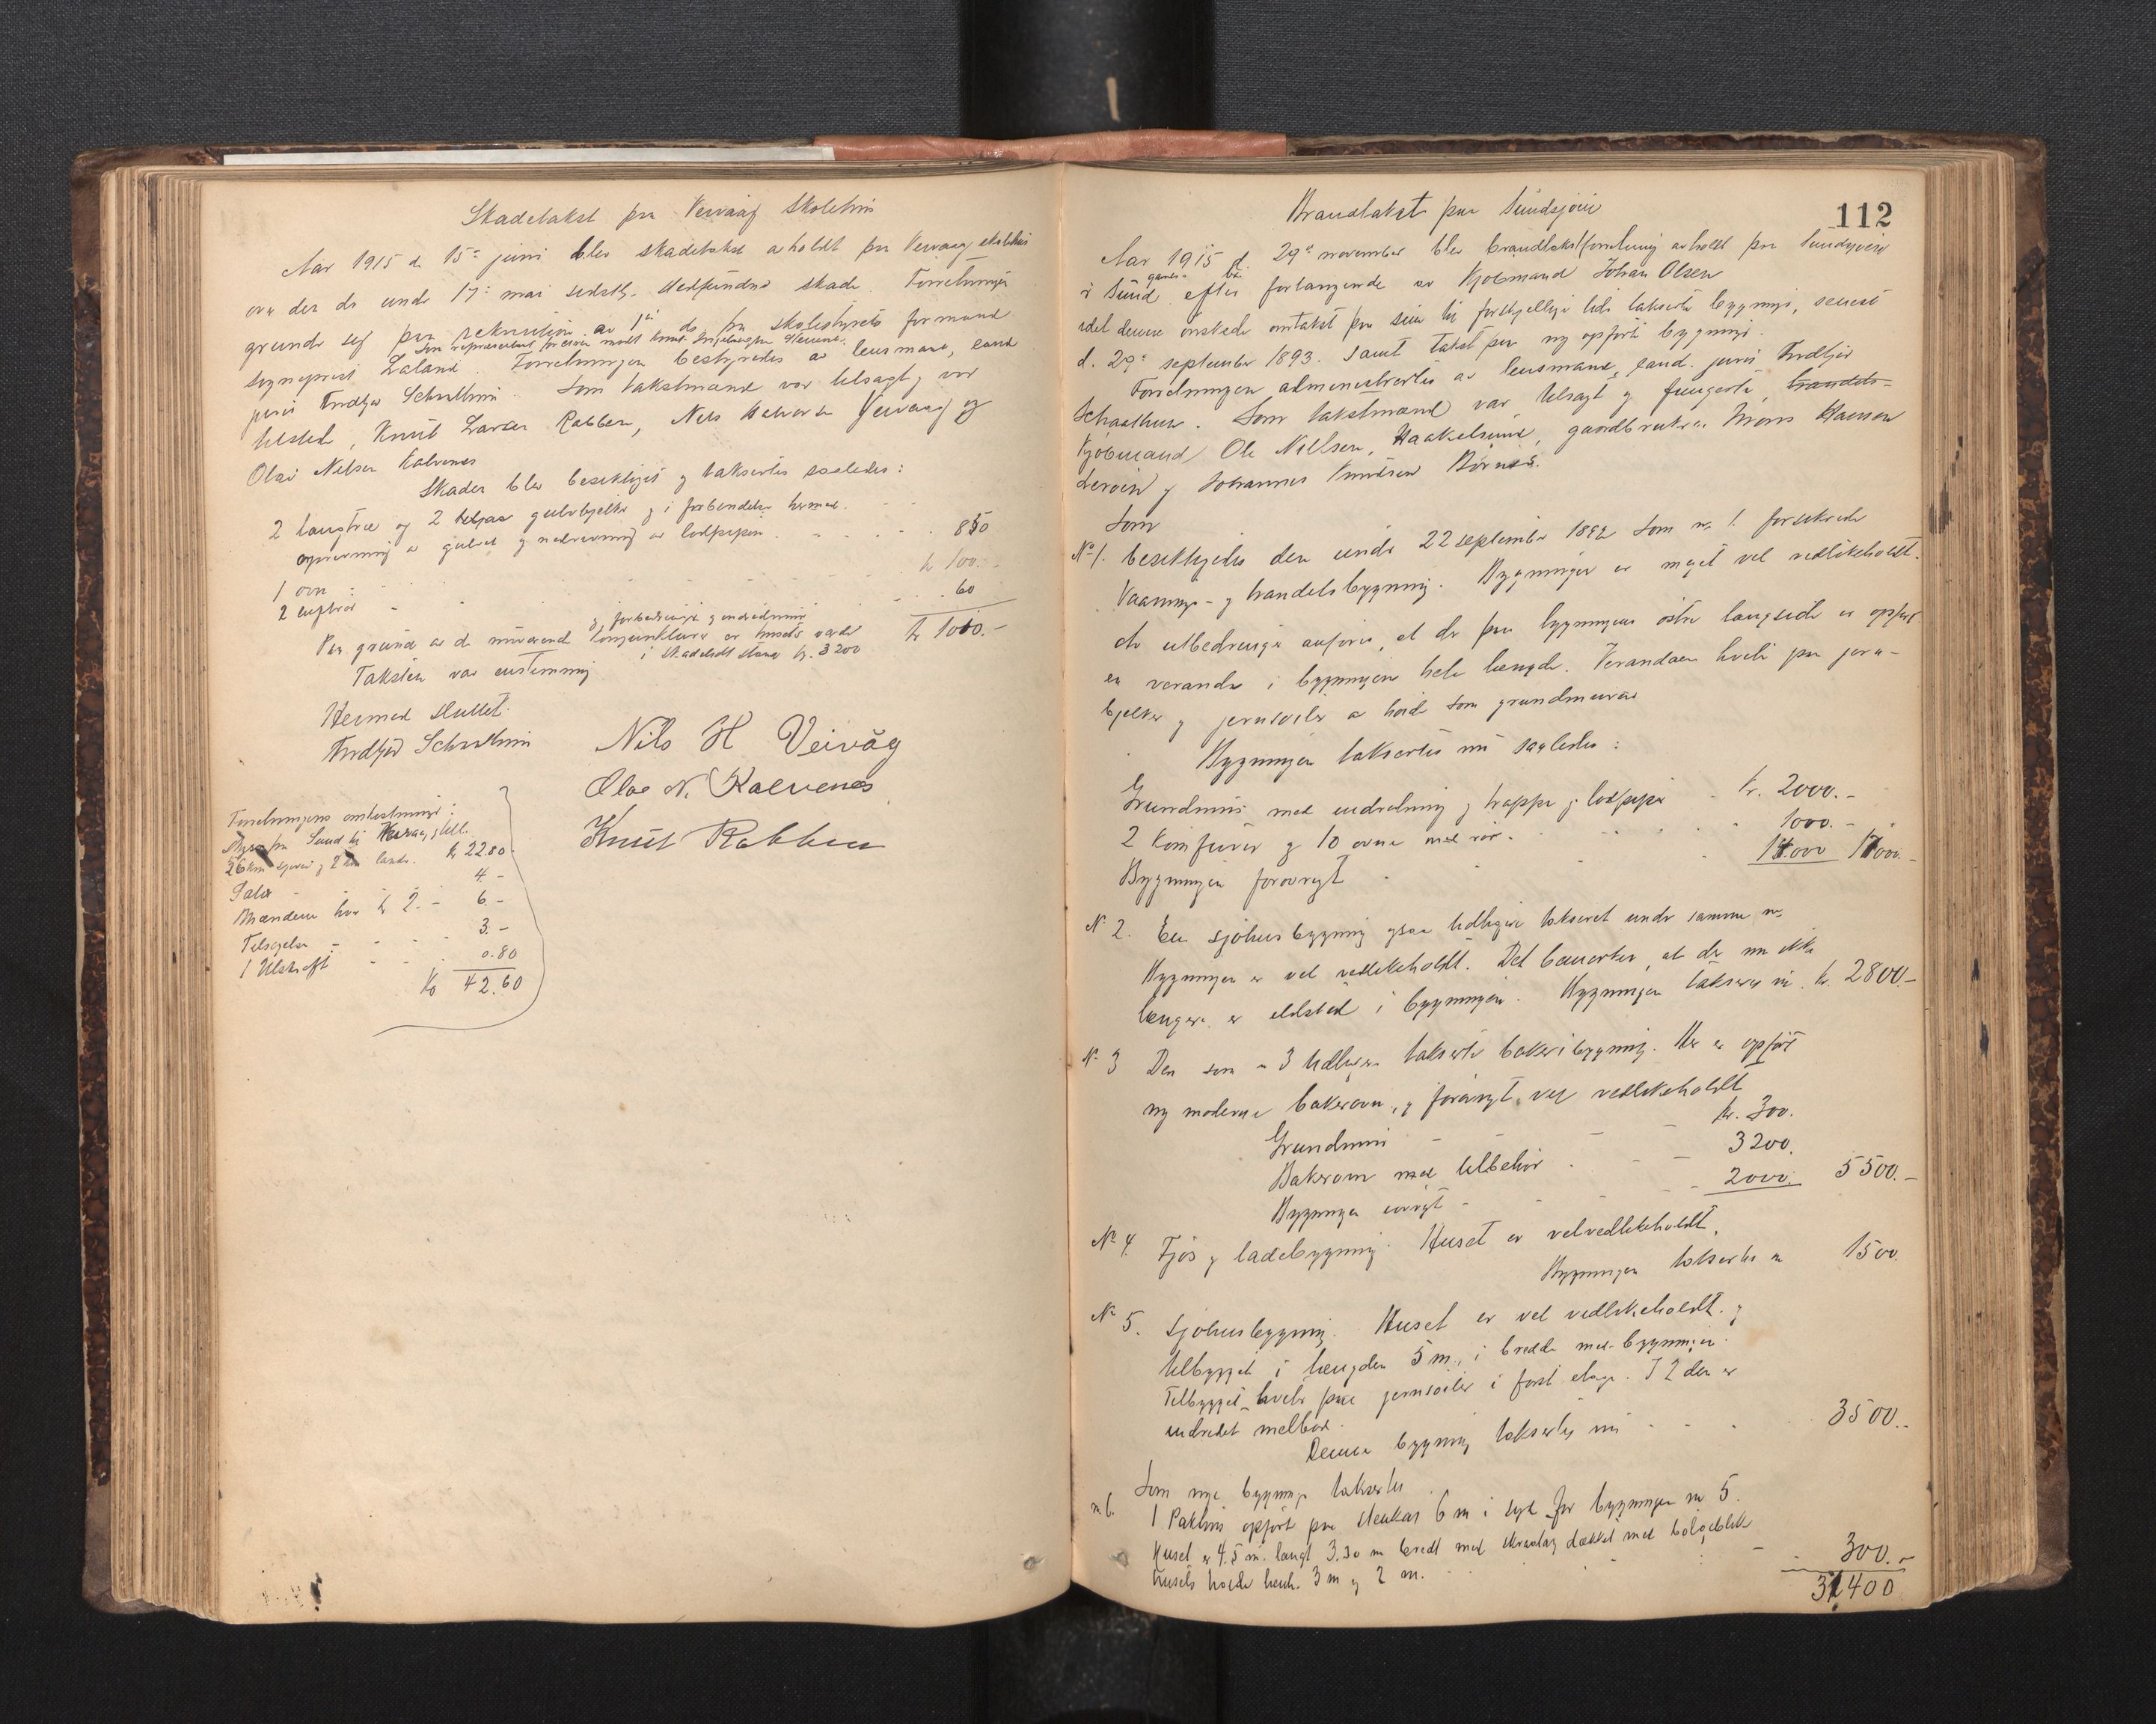 Skadetakst paa Veivaag skolehus
Aar 1915 d. 15de juni blev skadetakst avholdt paa Veivaag skolehus
over den de under 17de mai sidstl. stedfundne skade. Forretningen
grunder sig paa rekvisition av 1ste ds fra skolestyrets formand
sogneprest Løland. Forretningen bestyredes av lensmand, cand.
juris Fredtjov Schaathun. Som takstmænd var tilsagt og var
tilstede, Knut Larsen Rabben, Nils Halvorsen Veivaag og
Olai Nilsen Kalvenes
Skaden blev besiktiget og taksertes saaledes:
2 langtræ og 2 gulvbjelker og i forbindelse hermed
oprivning av gulvet og nedrivning av lodpipen 850
1 ovn kr 100.-
2 luftrør 60
Paa grund av de nuværende konjunkturer og forbedringer og indredning er husets værdi kr 1010.-
i skadelidt stand kr. 3200
Taksten var enstemmig
Hermed sluttet.
Fredtjov Schaathun
Nils H Veivåg
Olai N. Kalvenes
Knut Rabben
Forretningens omkostninger:
fra Sund til Veivaag og tilb.
26 km sjøvei og 2 km lande. kr 22.80
4.-
Mændene hver kr 2.- 6.-
Tilsigelse 3.-
1 Utskrift 0.80
kr 42.60
112
Brandtakst paa Sundsjøen
Aar 1915 d. 29de november blev brandtakstforretning avholdt paa Sundsjøen
i Sund efter forlangende av Kjøbmand Johan Olsen
idet denne ønskede omtakst paa sine til forskjellige tider takserte bygninger, senest
d. 29de september 1893. samt takst paa ny opført bygning.
Forretningen administrertes av lensmand, cand. juris Fredtjov
Schaathun. Som takstmænd var tilsagt og fungerte handels-
Kjøbmand Ole Nillsen, Haakelsund, gaardbruker Mons Hansen
Lerøen og Johannes Knutsen Børnes.
Som
No 1. besiktigedes den under 22 september 1892 som nr 1. forsikrede
Vaanings- og handelsbygning. Bygningen er meget vel vedlikeholdt.
Av utbedringer anføres, at der paa bygningens østre langside er opført
en veranda i bygningens hele længde. Verandaen hviler paa jern-
bjelker og jernsøiler av høide som grundmuren
Bygningen taksertes nu saaledes:
Grundmur med indredning og trappe og lodpipe kr. 2000.-
2 komfurer og 10 ovne med rør 1000.-
Bygningen forøvrigt 14000 17000.-
No 2. En sjøhusbygning ogsaa tidligere taksert under samme nr
Bygningen er vel vedlikeholdt. Det bemerkes, at der nu ikke
længere er ildsted i bygningen. Bygningen takseres nu kr. 2800.-
No 3 Den som nr 3 tidligere takserte bakeribygning. Her er opført
ny moderne bakerovn, og forøvrigt vel vedlikeholdt
Grundmur kr. 300.
Bakerovn med tilbehør 3200.
Bygningen iøvrigt 2000. 5500.-
No 4 Fjøs og ladebygning. Huset er velvedlikeholdt.
Bygningen taksertes nu 1500.
No 5. Sjøhusbygning. Huset er vel vedlikeholdt. og
tilbygget i længden 5 m, i bredde med bygningen.
Tilbygget hviler paa jernsøiler i første etage. I 2den er
indredet melbod.
Denne bygning taksertes nu 3500.-
Som nye bygninger taksertes
nr 6. 1 Pakhus opført paa stenkar 6 m i syd for bygningen nr 5.
Huset er 4.5 m. langt 3.30 m bredt med skraatag dækket med bølgeblik
husets høide henh. 3 m og 2 m. 300.-
31400